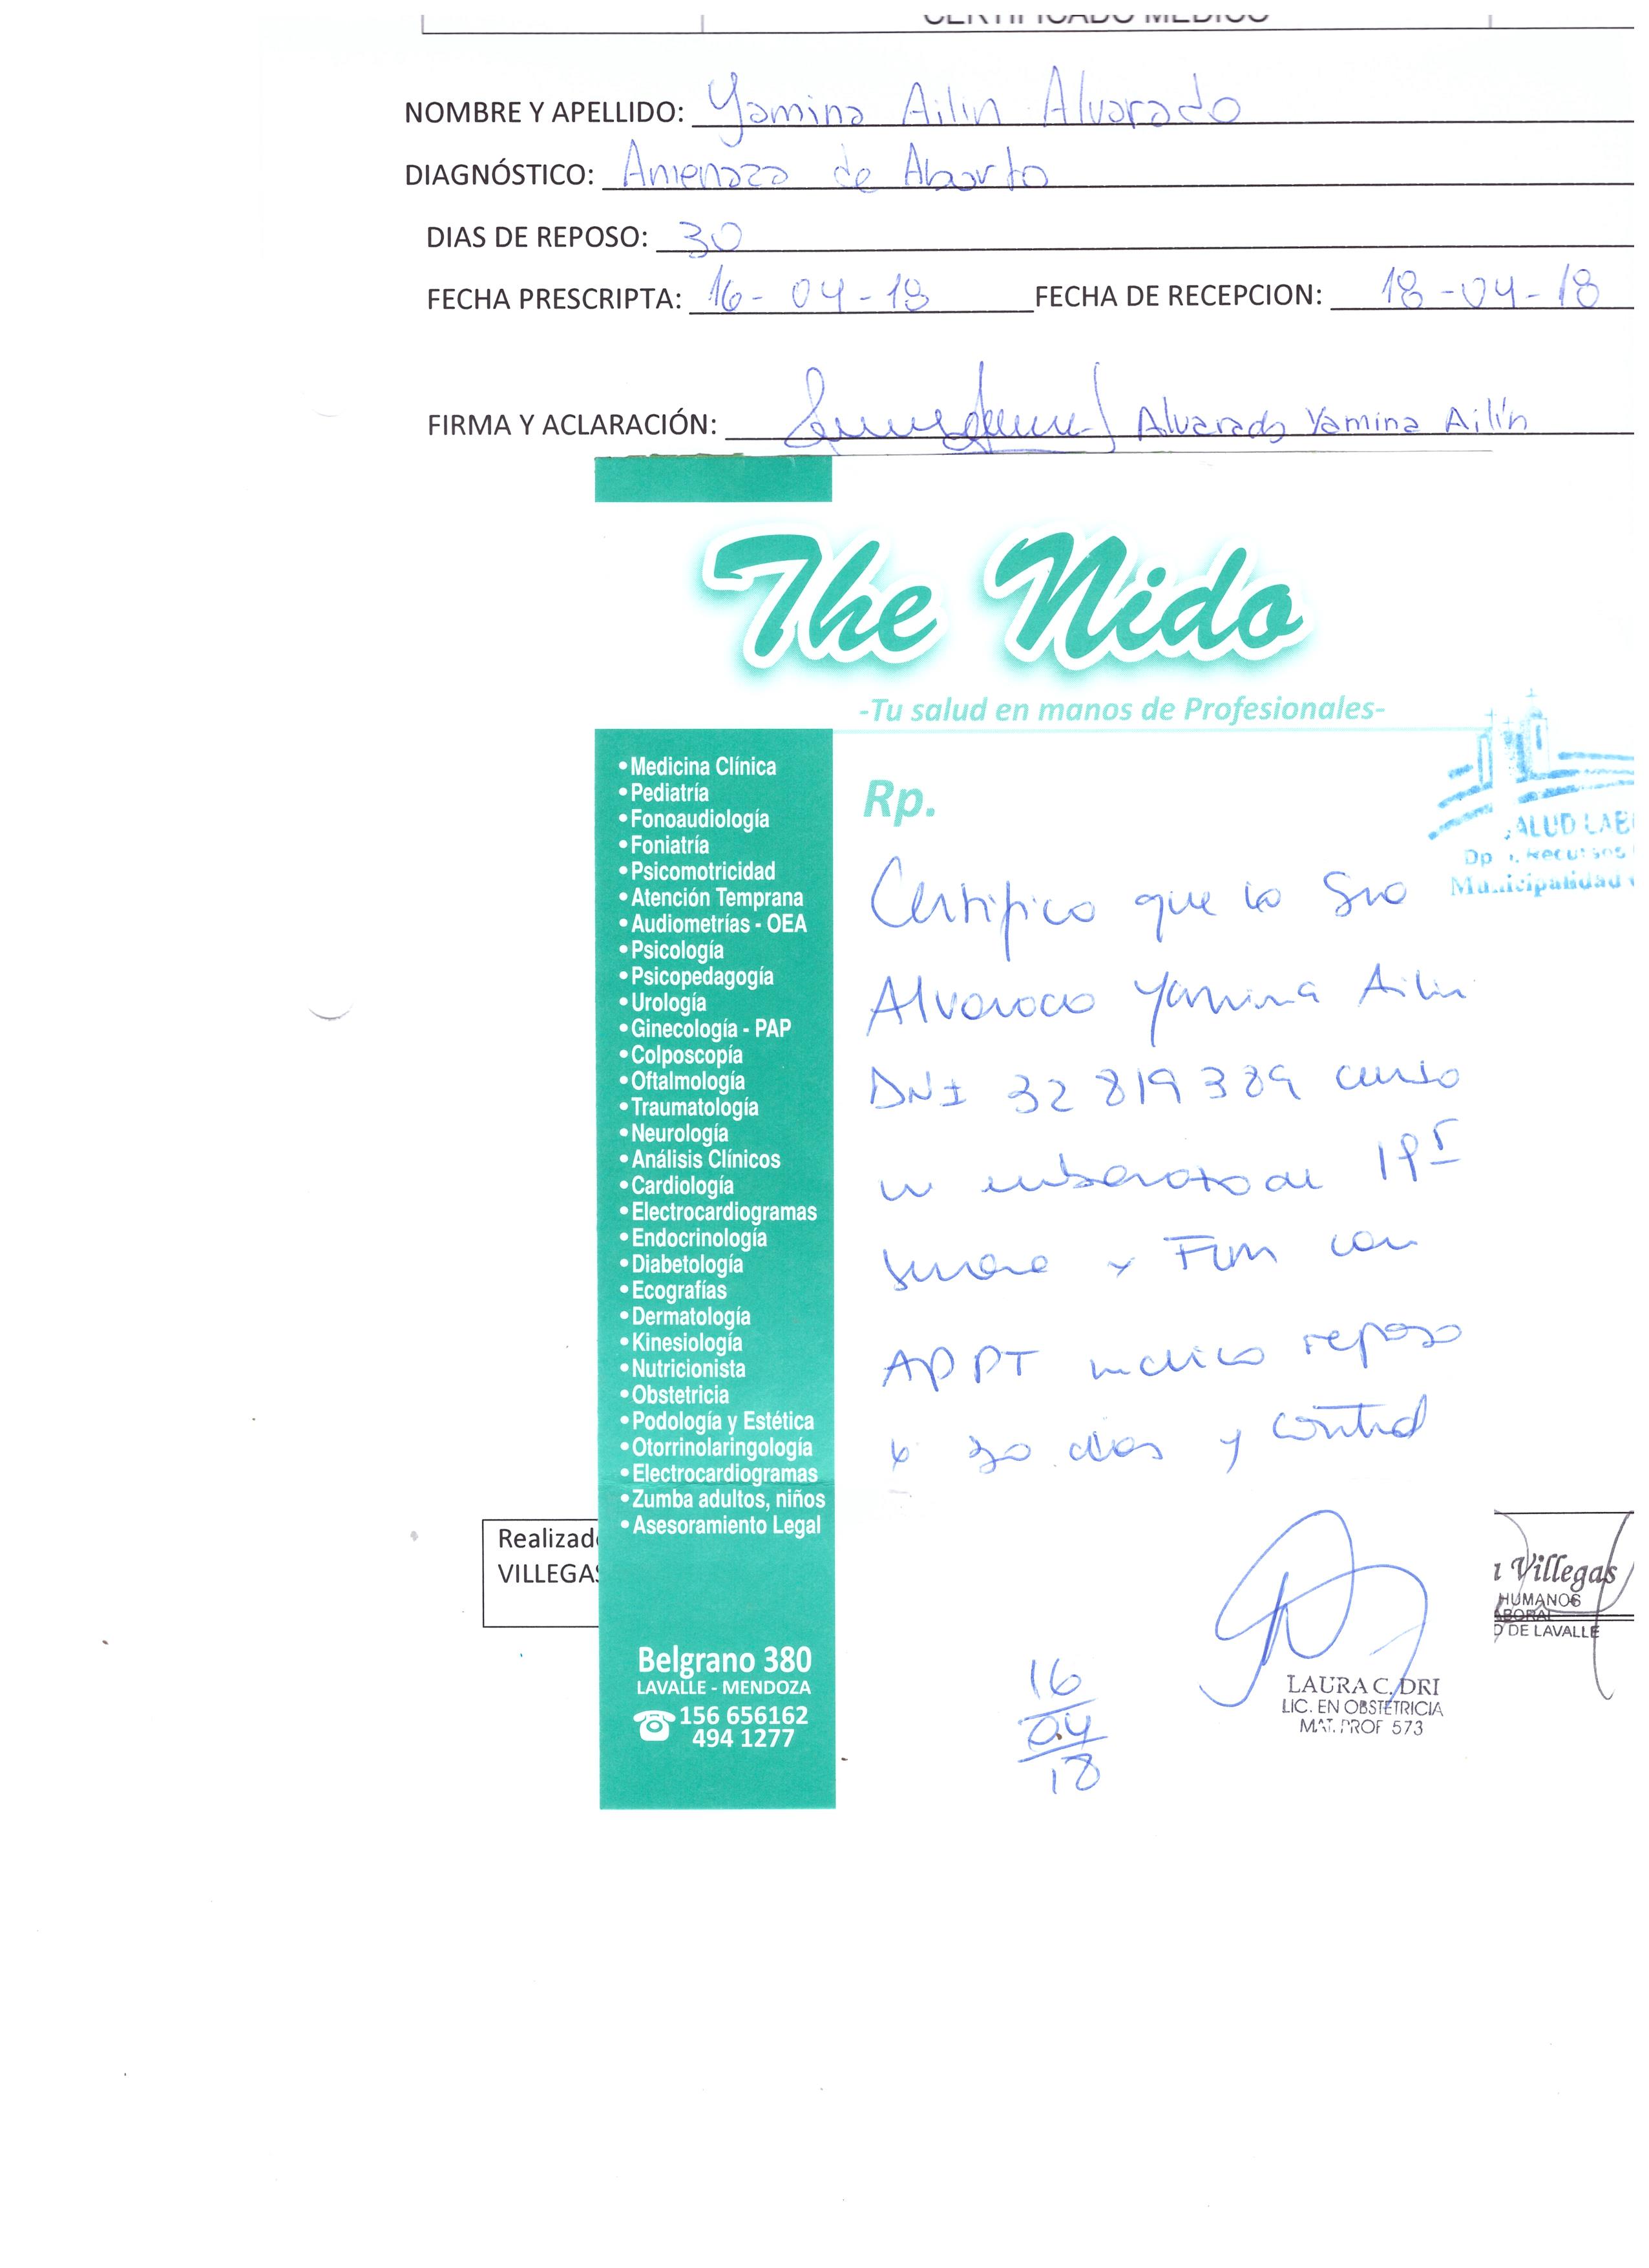 CERTIFICADO MEDICO
NOMBRE Y APELLIDO: Yamina Ailin Alvarado
DIAGNÓSTICO: Amenaza de Aborto
DIAS DE REPOSO: 30
FECHA PRESCRIPTA: 16-04-18 FECHA DE RECEPCION: 18-04-18
FIRMA Y ACLARACIÓN: Alvarado Yamina Ailín
The Nido
-Tu salud en manos de Profesionales-
• Medicina Clínica
• Pediatría
• Fonoaudiología
• Foniatría
• Psicomotricidad
• Atención Temprana
• Audiometrías - OEA
• Psicología
• Psicopedagogía
• Urología
• Ginecología - PAP
• Colposcopía
• Oftalmología
• Traumatología
• Neurología
• Análisis Clínicos
• Cardiología
• Electrocardiogramas
• Endocrinología
• Diabetología
• Ecografías
• Dermatología
• Kinesiología
• Nutricionista
• Obstetricia
• Podología y Estética
• Otorrinolaringología
• Electrocardiogramas
• Zumba adultos, niños
• Asesoramiento Legal
Belgrano 380
LAVALLE - MENDOZA
156 656162
494 1277
Rp.
ALUD LAB
Dp Recursos
Municipalidad
Certifico que la Sra
Alvarado Yamina Ailin
DNI 32 819 389 curso
embarazo de
semana x FUM con
APPT indico reposo
x 30 dias y control
16
04
18
LAURA C. DRI
LIC. EN OBSTETRICIA
MAT. PROF 573
Realizad
VILLEGAS
Villegas
HUMANOS
ABORAL
D DE LAVALLE